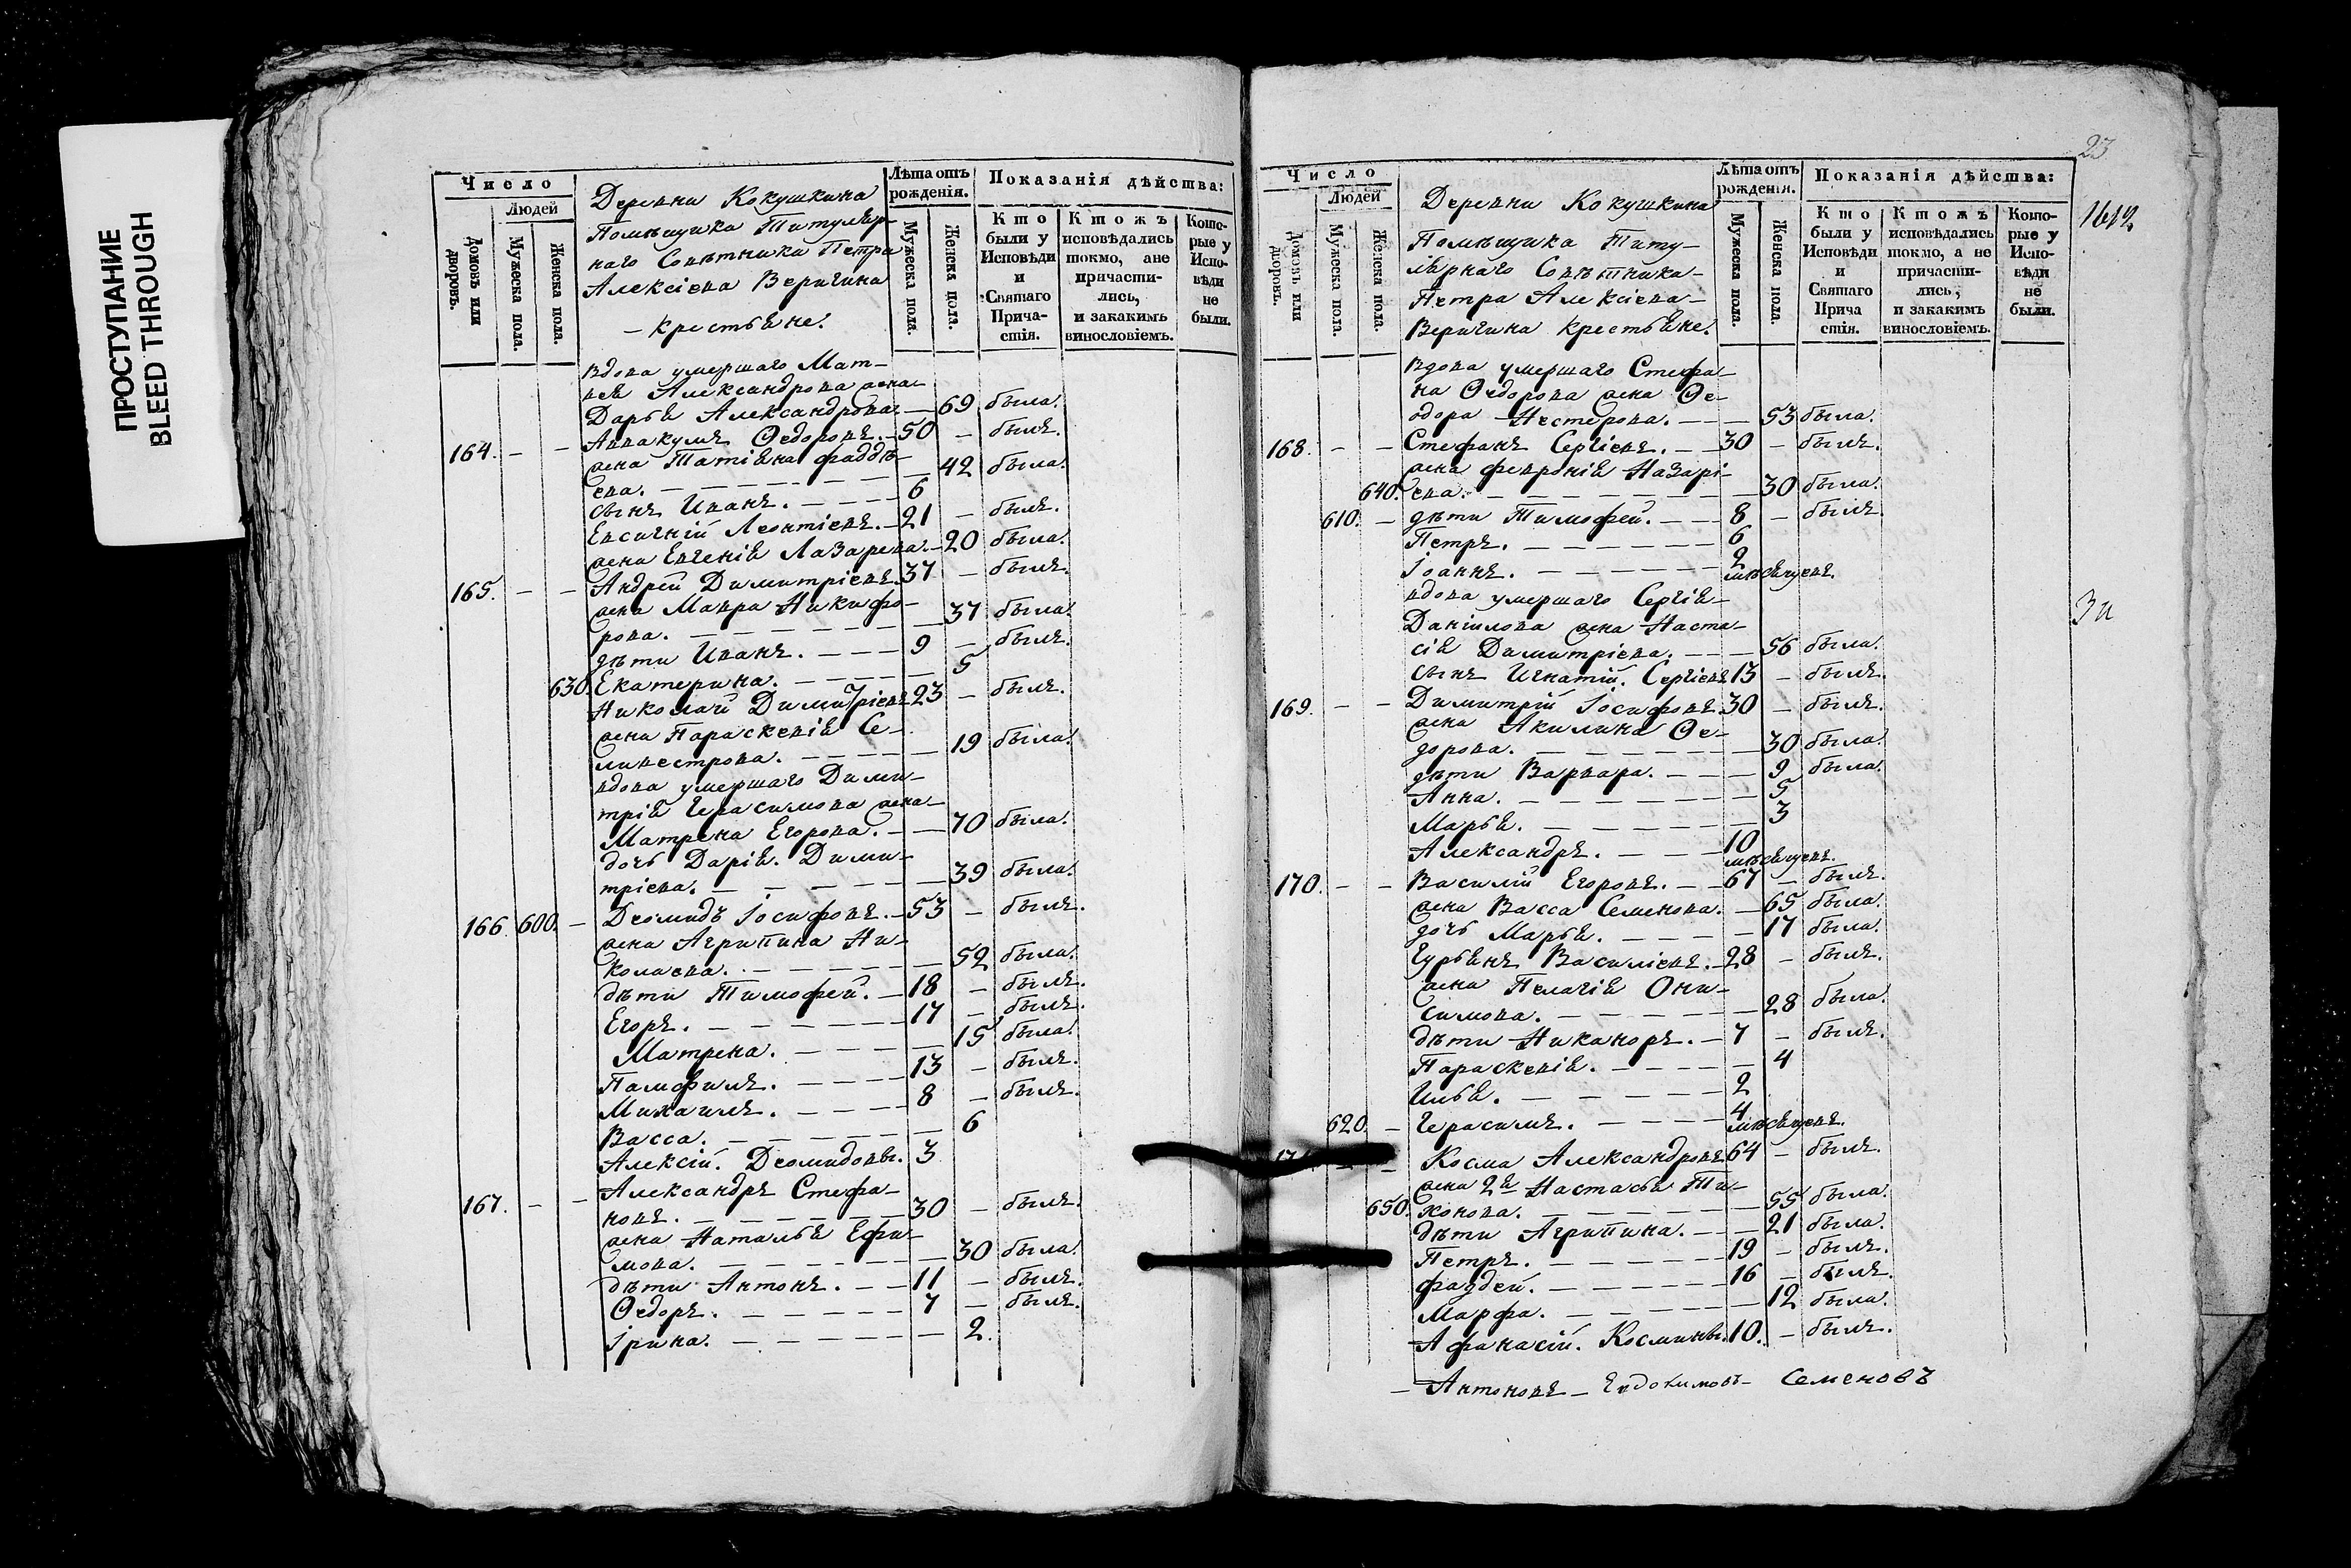 ПРОСТУПАНИЕ
BLEED THROUGH
Число
Людей
Домовъ или дворовъ.
Мужеска пола.
Женска пола.
Деревни Кокушкина
Помѣщика Титуляр-
наго Совѣтника Петра
Алексіева Веригина
- крестьяне.
Лѣта отъ рожденія.
Мужеска пола.
Женска пола.
Показанія дѣйства:
Кто были у Исповѣди и Святаго Прича-стія.
Ктожъ исповѣдались токмо, ане причасти-лись, и закакимъ винословіемъ.
Кото-рые у Испо-вѣди не были.
вдова умершаго Мат-
вея Александрова жена
Дарья Александрова. — 69 была.
164. - - Аввакумъ Ѳедоровъ. - 50 - былъ.
жена Татіяна Фаддѣ-
ева. — 42 была.
сынъ Иванъ. — 6
Евсигній Леонтіевъ. - 21 - былъ.
жена Евгенія Лазарева. - 20 была.
165. - - Андрей Димитріевъ. 37 - былъ.
жена Мавра Никифо-
рова. — 37 была.
дѣти Иванъ. — 9 - былъ.
630. Екатерина. — 5
Николай Димитріевъ 23 - былъ.
жена Параскевія Се-
ливестрова. — 19 была.
вдова умершаго Дими-
трія Герасимова жена
Матрена Егорова. — 70 была.
дочь Дарія. Дими-
тріева. — 39 была.
166. 600. - Деомидъ Іосифовъ. - 53 - былъ.
жена Агрипина Ни-
колаева. — 52 была.
дѣти Тимофей. - 18 - былъ.
Егоръ. — 17 - былъ.
Матрена. — 15 была.
Памфилъ. — 13 - былъ.
Михаилъ. — 8 - былъ.
Васса. — 6
Алексій. Деомидовы. 3
167. - - Александръ Стефа-
новъ. — 30 - былъ.
жена Наталья Ефи-
мова. — 30 была.
дѣти Антонъ. — 11 - былъ.
Ѳедоръ. — 7 - былъ.
Ірина. — 2.
23
1612
Число
Людей
Домовъ или дворовъ.
Мужеска пола.
Женска пола.
Деревни Кокушкина
Помѣщика Титу-
лярнаго Совѣтника-
Петра Алексіева-
Веригина крестьяне.
Лѣта отъ рожденія.
Мужеска пола.
Женска пола.
Показанія дѣйства:
Кто были у Исповѣди и Святаго Прича стія.
Ктожъ исповѣдались токмо, а не причасти-лись, и закакимъ винословіемъ.
Кото-рые у Испо-вѣди не были.
вдова умершаго Стефа-
на Ѳедорова жена Ѳе-
одора Нестерова. — 53 была.
168. - - Стефанъ Сергіевъ. — 30 - былъ.
жена Февронія Назарі-
640. ева. — 30 была.
610. - дѣти Тимофей. — 8 - былъ.
Петръ. — 6
Іоаннъ. — 2 мѣсяцевъ.
вдова умершаго Сергія
Даніилова жена Наста-
сія Димитріева. — 56 была.
сынъ Игнатій. Сергіевъ 13 - былъ.
169. - - Димитрій Іосифовъ. 30 - былъ.
жена Акилина Ѳе-
дорова. — 30 была.
дѣти Варвара. — 9 была.
Анна. — 5
Марья. — 3
Александръ. — 10 мѣсяцевъ.
170. - - Василій Егоровъ. — 67 - былъ.
жена Васса Семенова. - 65 была.
дочь Марья. — 17 была.
Гурьянъ Василіевъ. - 28 - былъ.
жена Пелагія Они-
симова. — 28 была.
дѣти Никаноръ. - 7 - былъ.
Параскевія. — 4
Илья. — 2
620. - Герасимъ. — 4 мѣсяцевъ.
Косма Александровъ 64 - былъ.
жена 2я Настасья Ти-
650. хонова. — 55 была.
дѣти Агрипина. — 21 была.
Петръ. — 19 - былъ.
Фаддей. — 16 - былъ.
Марфа. — 12 была.
Афанасій. Космины. 10. - былъ.
— Антоновъ — Евдокимовъ — Семеновъ